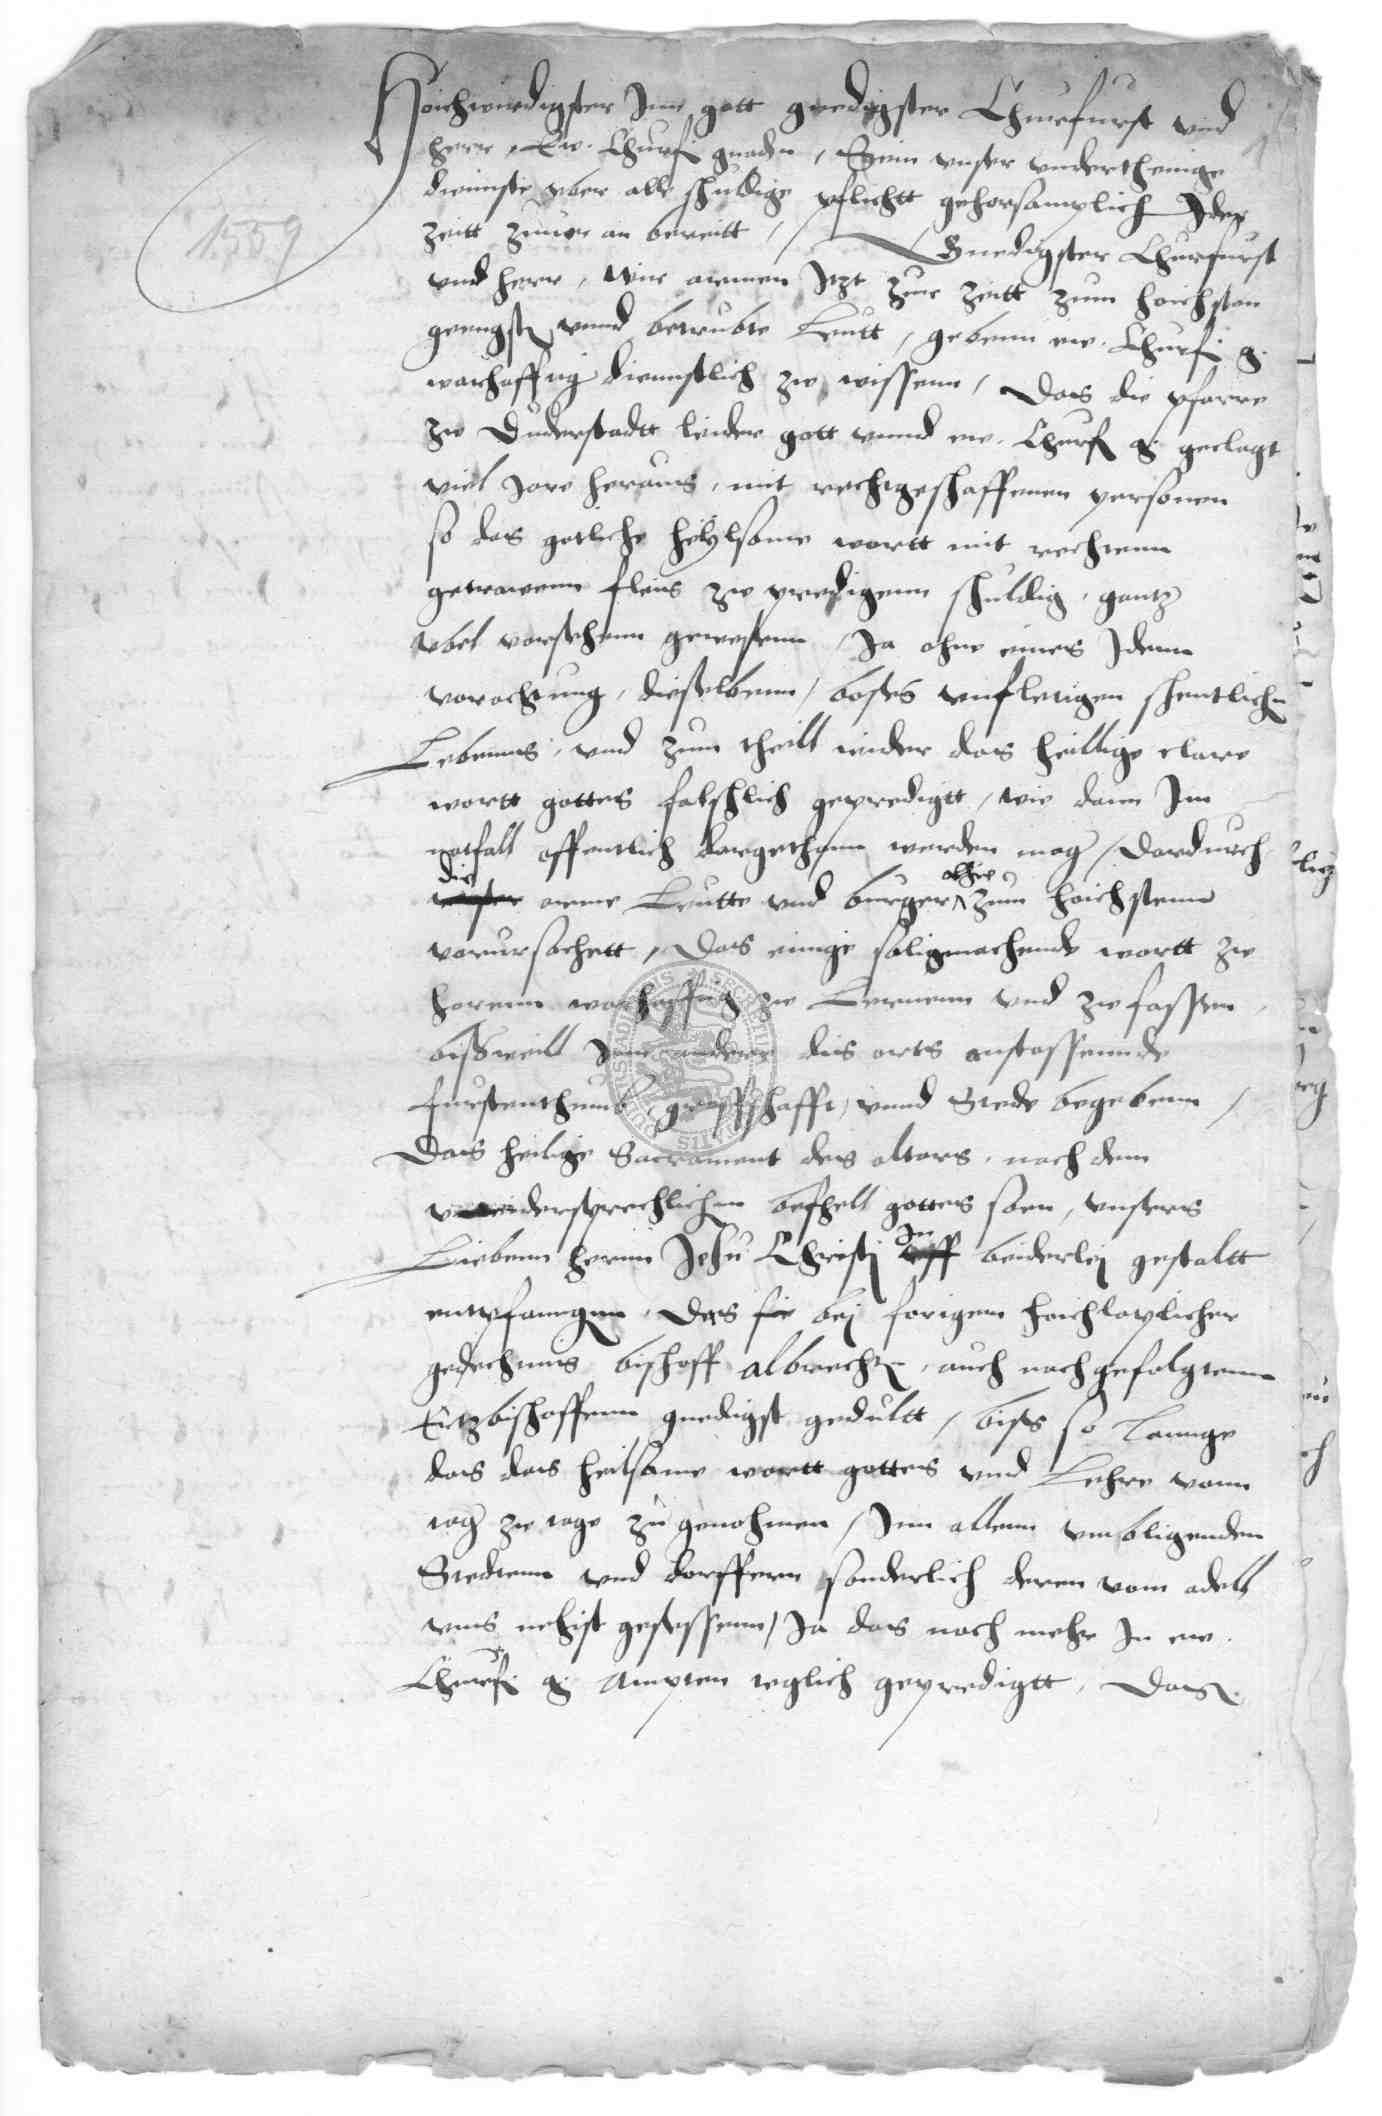 1559
Hoichwirdigster Inn gott gnedigster Churfurst vnd
herr, Ew. Churf. gnaden, Sein vnser vnderthenige
diennste vber alle schuldige pflichtt gehorsamplich Ider
zeitt zuuor an bereitt, Gnedigster Churfurst
vnd herr, Wir armen Itzt zur zeitt zum hoichsten
geengste vnnd betrubte Leutt, gebenn ew. Churf. g.
warhafftig diennstlich zw wissenn, Das die pfarre
zw Duderstadtt leider gott vnnd ew. Churf. g. geclagt
viel Jare heraus, mit rechtgeschaffenen personen
so das gotliche heylsame wortt mit rechtem
getrawenn fleis zw predigenn schuldig, gantz
vbel vorsehenn gewesenn, Ja ohne eines Idenn
vorachtung, dieselbenn, boses vnfletigen schentlichen
Lebenns, vnd zum theill wider das heillige clare
wortt gottes falschlich gepredigtt, wie dann Im
notfall offentlich dargethann werden mag, dardurch
die
arme Leutte vnd burger alhie zum hoichstenn
vorursachett, Das einige saligmachende wortt zw
horenn warhafftig zw Lernenn vnd zw fassen,
bissweill Inn andere dis orts anstossennde
furstenthumb, graffschafft, vnnd Stede begebenn,
Das heilige Sacrament des altars, nach dem
vnwidersprechlichen befhell gottes soen, vnsers
Liebenn herrnn Jesu Christi In vff beiderlej gestaltt
entpfanngen, Das sie bej forigem hoichloplicher
gedechtnis bischoff albrecht, auch nachgefolgtenn
Ertzbischoffenn gnedigst gedultt, biss so Lannge
das das heilsame wortt gottes vnd Lehre vonn
tag zw tage zu genohmen, Inn allenn vmbligenden
Stedtenn vnd dorffern sonderlich deren vom adell
vnns nehist gesessenn, Ja das noch mehr In ew.
Churf. g. Ampten teglich gepredigtt, Das